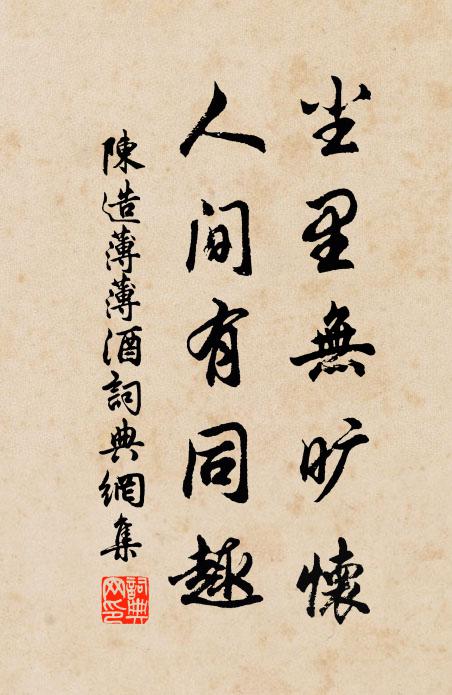 尘里無旷懷
人间有同趣
陳造薄薄酒詞典網集
詞典网印